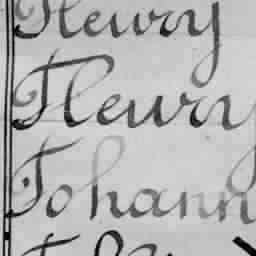 Fleury
Fleury
Johann